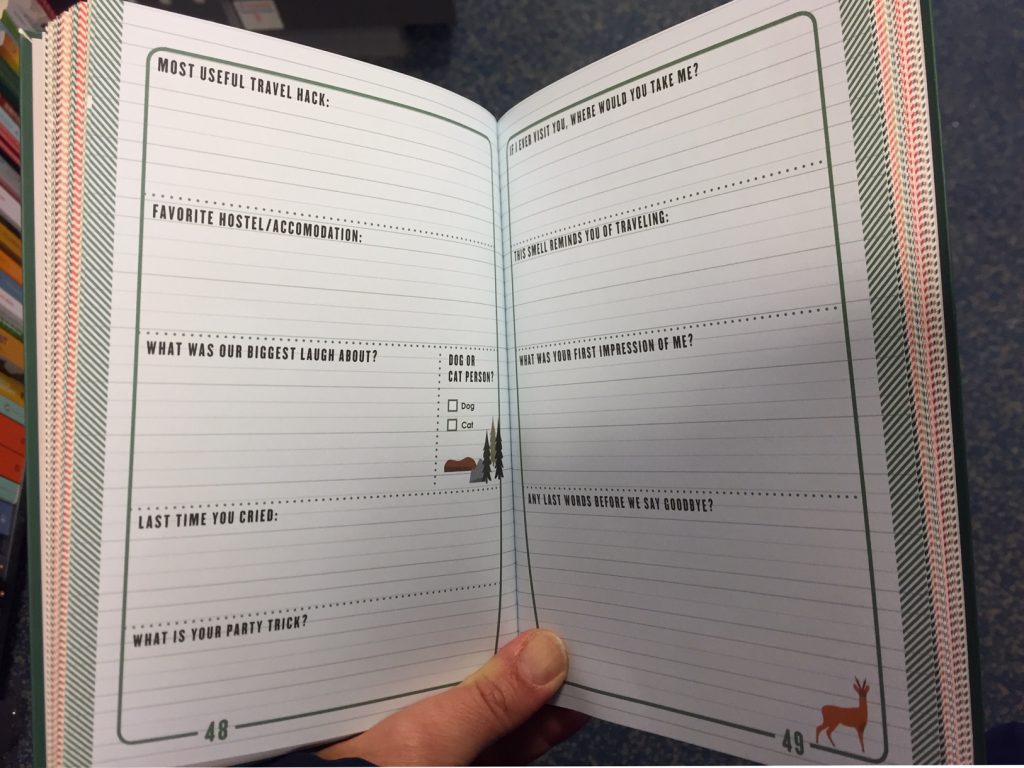 MOST USEFUL TRAVEL HACK:
FAVORITE HOSTEL/ACCOMODATION:
WHAT WAS OUR BIGGEST LAUGH ABOUT?
DOG OR
CAT PERSON?
Dog
Cat
LAST TIME YOU CRIED:
WHAT IS YOUR PARTY TRICK?
48
IF I EVER VISIT YOU, WHERE WOULD YOU TAKE ME?
THIS SMELL REMINDS YOU OF TRAVELING:
WHAT WAS YOUR FIRST IMPRESSION OF ME?
ANY LAST WORDS BEFORE WE SAY GOODBYE?
49